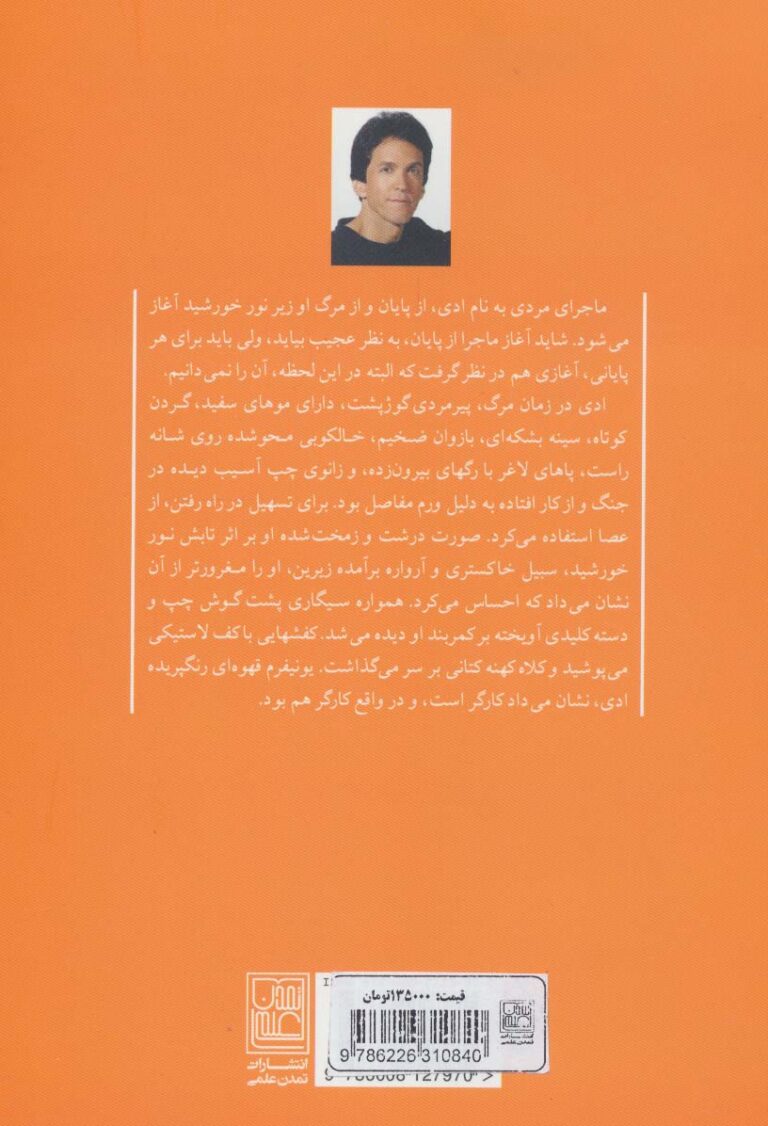 ماجرای مردی به نام ادی، از پایان و از مرگ او زیر نور خورشید آغاز
می‌شود. شاید آغاز ماجرا از پایان، به نظر عجیب بیاید، ولی باید برای هر
پایانی، آغازی هم در نظر گرفت که البته در این لحظه، آن را نمی‌دانیم.
ادی در زمان مرگ، پیرمردی گوژپشت، دارای موهای سفید، گردن
کوتاه، سینه بشکه‌ای، بازوان ضخیم، خالکوبی محوشده روی شانه
راست، پاهای لاغر با رگهای بیرون‌زده، و زانوی چپ آسیب دیده در
جنگ و از کار افتاده به دلیل ورم مفاصل بود. برای تسهیل در راه رفتن، از
عصا استفاده می‌کرد. صورت درشت و زمخت‌شده او بر اثر تابش نور
خورشید، سبیل خاکستری و آرواره برآمده زیرین، او را مغرورتر از آن
نشان می‌داد که احساس می‌کرد. همواره سیگاری پشت گوش چپ و
دسته کلیدی آویخته بر کمربند او دیده می‌شد. کفشهایی با کف لاستیکی
می‌پوشید و کلاه کهنه کتانی بر سر می‌گذاشت. یونیفرم قهوه‌ای رنگپریده
ادی، نشان می‌داد کارگر است، و در واقع کارگر هم بود.
قیمت: ۱۳۵۰۰۰تومان
9 786226 310840
انتشارات
تمدن علمی